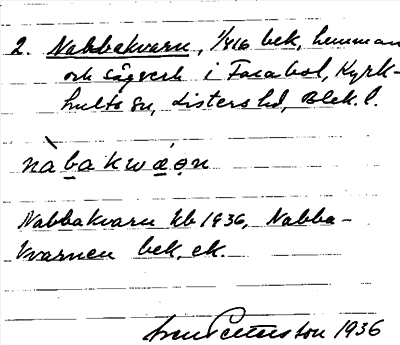 2. Nabbakvarn, 1/416 bek, hemman
och sågverk i Farabol, Kyrk-
hults sn, Listers hd, Blek. l.
nàbakwáṛn
Nabbakvarn kb 1936, Nabba-
kvarnen bek, ek.
Pettersson 1936